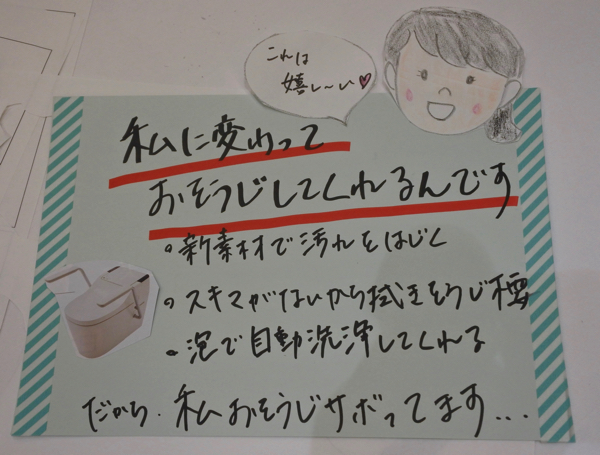 これは
嬉し～い♥
私に変わって
おそうじしてくれるんです
・新素材で汚れをはじく
・スキマがないから拭きそうじ
・泡で自動洗浄してくれる
だから、私おそうじサボってます...